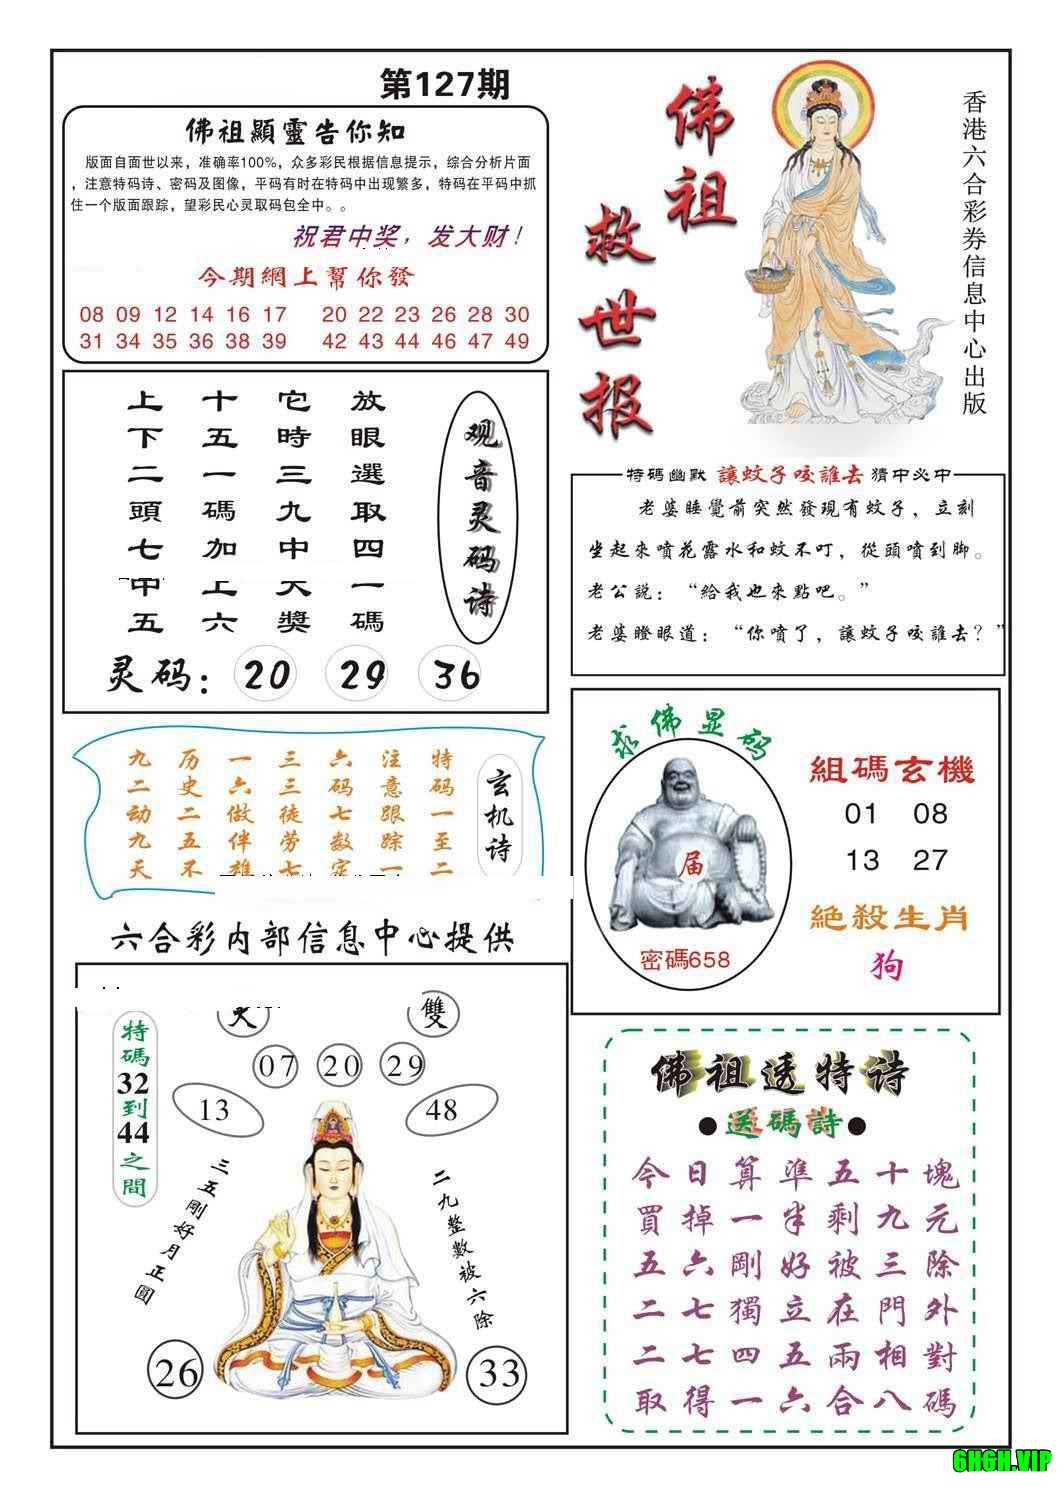 第127期
佛祖顯靈告你知
版面自面世以来，准确率100%，众多彩民根据信息提示，综合分析片面
，注意特码诗、密码及图像，平码有时在特码中出现繁多，特码在平码中抓
住一个版面跟踪，望彩民心灵取码包全中。。
祝君中奖，发大财！
今期網上幫你發
08 09 12 14 16 17 20 22 23 26 28 30
31 34 35 36 38 39 42 43 44 46 47 49
佛祖
救世报
香港六合彩券信息中心出版
放眼選取四一碼
它時三九中大獎
十五一碼加上六
上下二頭七中五
观音灵码诗
灵码：20 29 36
特碼幽默 讓蚊子咬誰去 猜中必中
老婆睡覺前突然發現有蚊子，立刻
坐起來噴花露水和蚊不叮，從頭噴到脚。
老公説：“給我也來點吧。”
老婆瞪眼道：“你噴了，讓蚊子咬誰去？”
玄机诗
特码一至二
注意跟踪一
六码七数定
三三徒劳七
一六做伴雄
历史二五不
九二动九天
求佛显码
届
密碼658
組碼玄機
01 08
13 27
絕殺生肖
狗
六合彩内部信息中心提供
雙
07 20 29
13 48
特碼32到44之間
三五剛好月正圓
二九整數被六除
26 33
佛祖透特诗
●送碼詩●
今日算準五十塊
買掉一半剩九元
五六剛好被三除
二七獨立在門外
二七四五兩相對
取得一六合八碼
6H6H.VIP